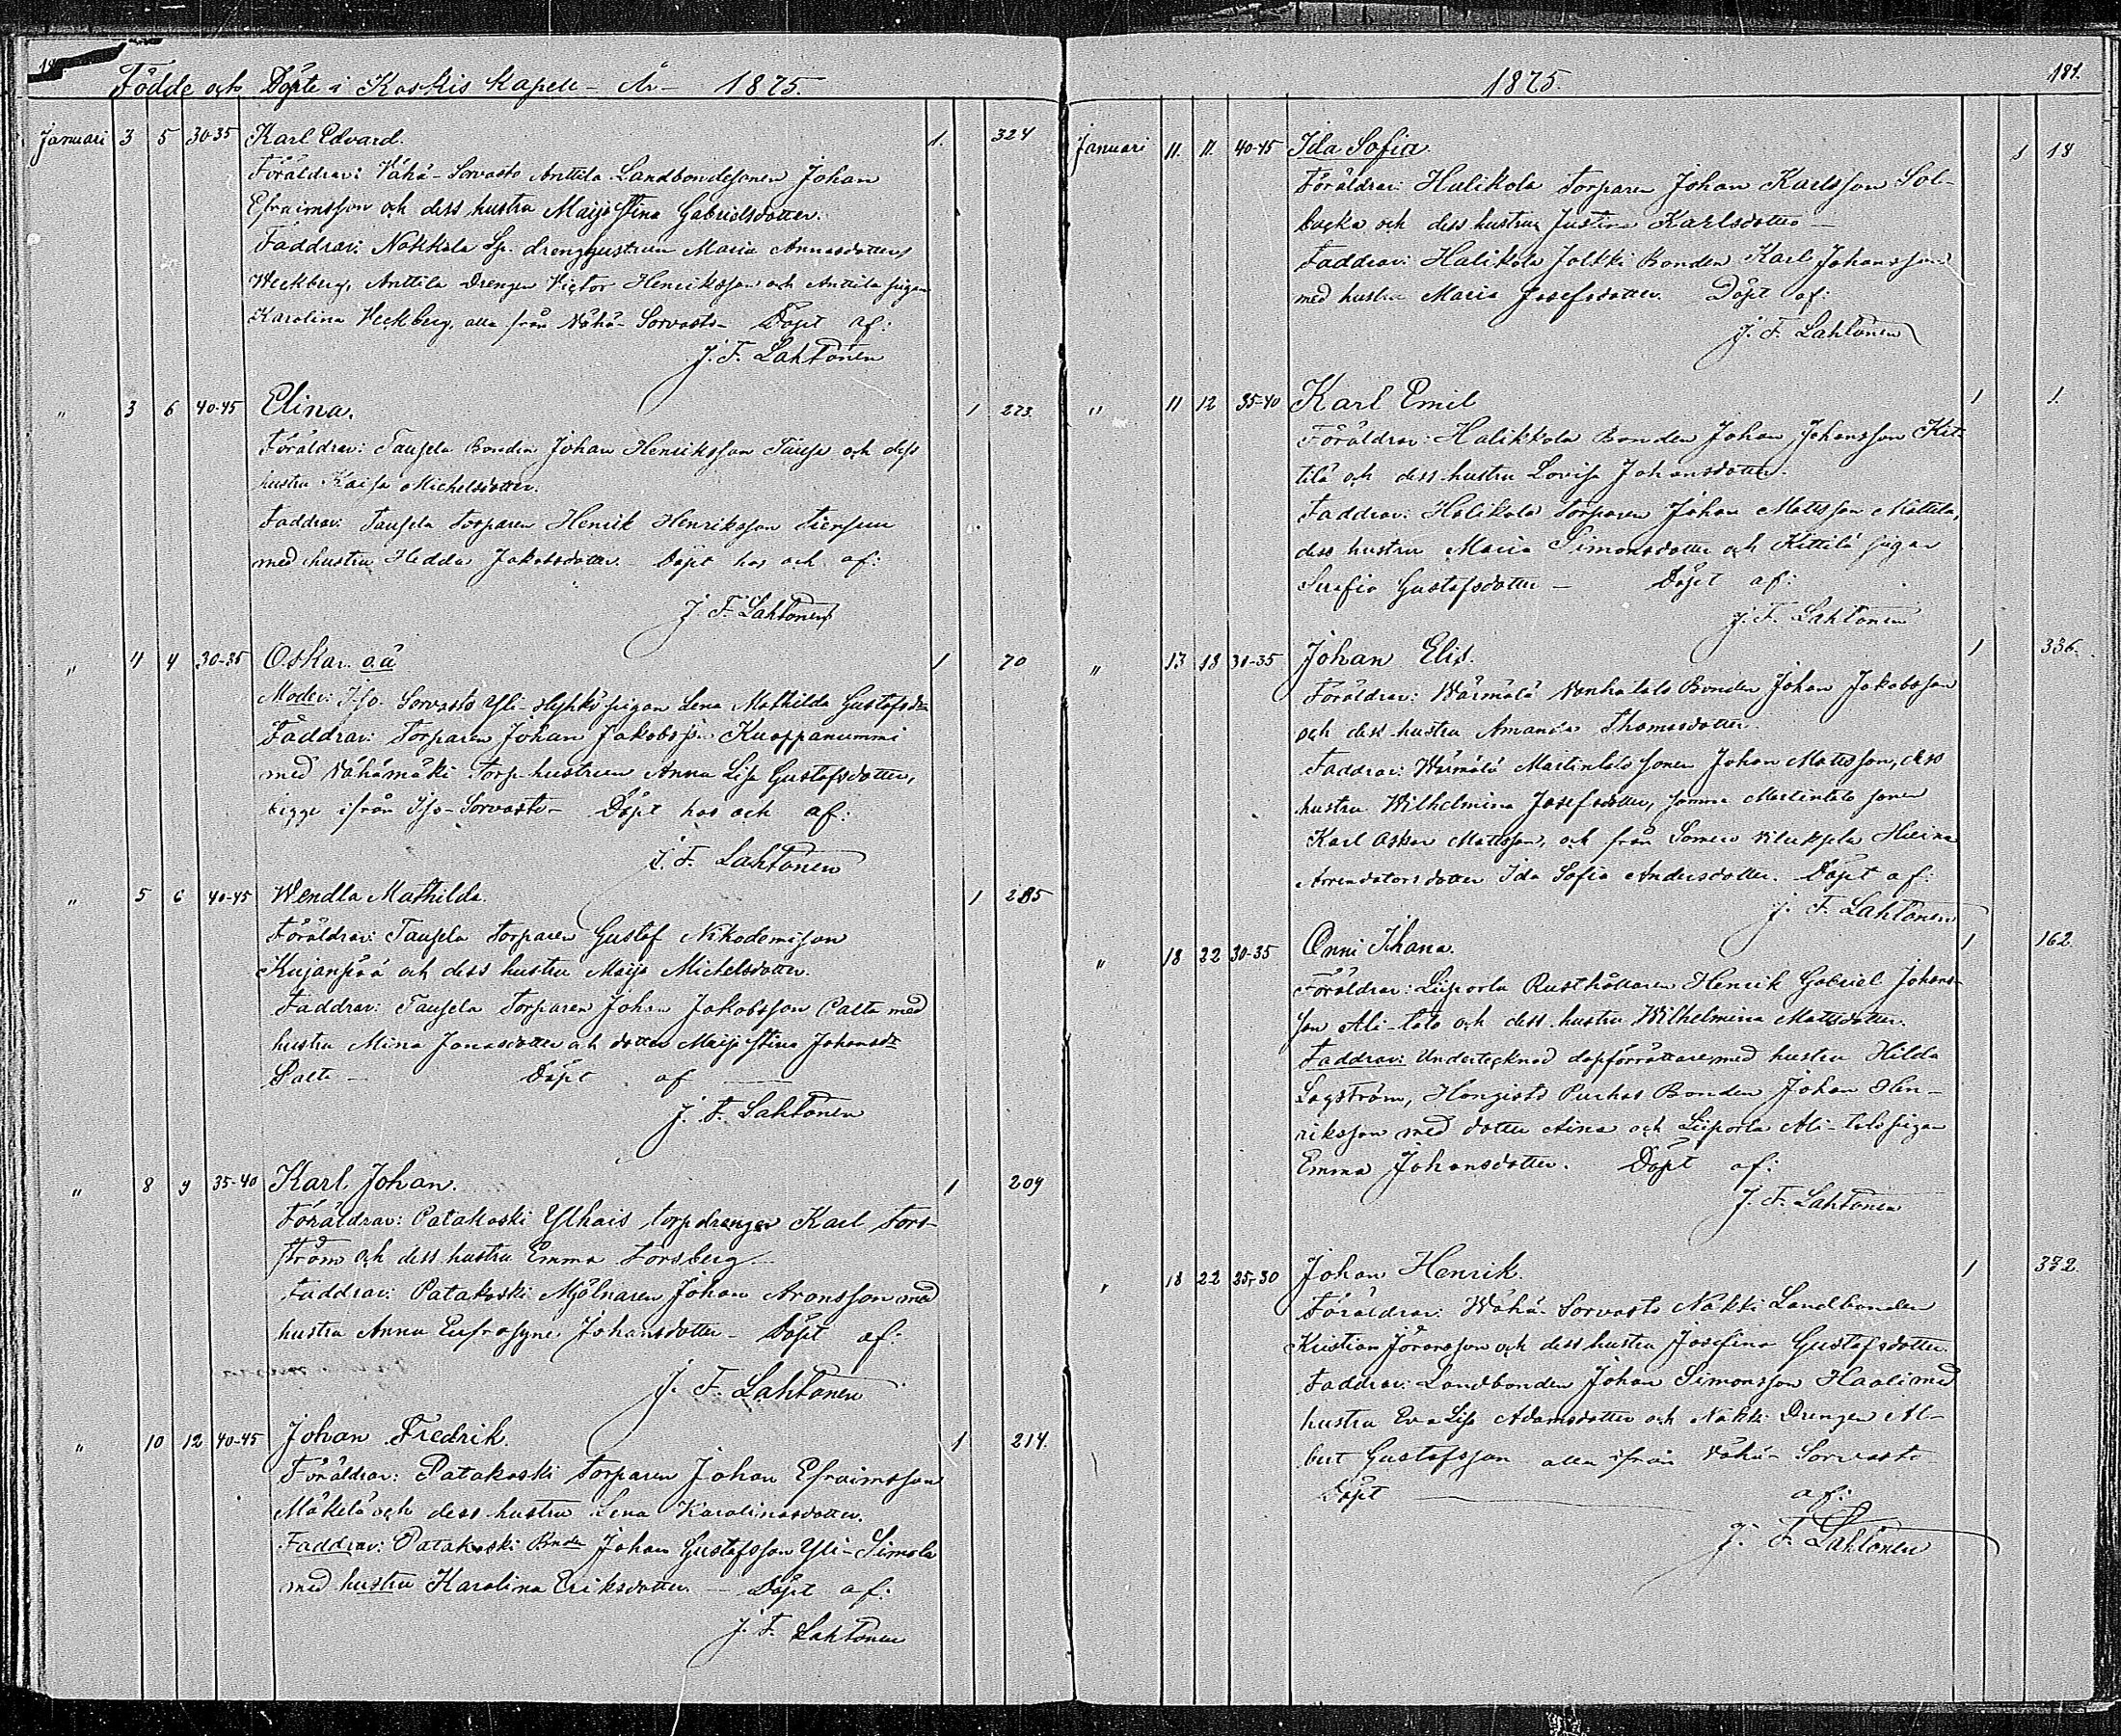 Födde och Döpte i Koskis Kapell År 1875.
Januari 3 5 30-35 Karl Edvard. 1. 324
Föräldrar: Vähä-Sorvasto Anttila Landbondesonen Johan
Efraimsson och dess hustru Maija Stina Gabrielsdotter.
Faddrar: Nokkala Sp. drenghustrun Maria Annasdotter
Weckberg, Anttila Drengen Victor Henriksson och Anttila pigan
Karolina Veckberg, alla från Vähä-Sorvasto - Döpt af:
J. F. Lahtonen
" 3 6 40-45 Elina. 1 273.
Föräldrar: Tausela Bonden Johan Henriksson Täuse och dess
hustru Kaisa Michelsdotter.
Faddrar: Tausela Torparen Henrik Henriksson
med hustru Hedda Jakobsdotter. - Döpt hos och af:
J. F. Lahtonen
" 4 4 30-35 Oskar o.ä 1 70
Moder: Iso-Sorvasto Yli- pigan Lena Mathilda Gustafsdr
Faddrar: Torparen Johan Jakobss:n Kuoppanummi
med Vähämäki Torp-hustrun Anna Lisa Gustafsdotter,
bägge ifrån Iso-Sorvasto - Döpt hos och af:
J. F. Lahtonen
" 5 6 40-45 Wendla Mathilda. 1 285
Föräldrar: Tausela Torparen Gustaf Nikodemison
Kujanpää och dess hustru Maija Michelsdotter.
Faddrar: Tausela Torparen Johan Jakobsson Palta med
hustru Mina Jonasdotter och dotter Maija Stina Johansdr
Palta - Döpt af
J. F. Lahtonen
" 8 9 35-40 Karl Johan. 1 209
Föräldrar: Patakoski Ylhais torpdrengen Karl Fors-
ström och dess hustru Emma Forsberg
Faddrar: Patakoski Mjölnaren Johan Aronsson med
hustru Anna Eufrosyne Johansdotter - Döpt af:
J. F. Lahtonen
" 10 12 40-45 Johan Fredrik. 1 214.
Föräldrar: Patakoski Torparen Johan Efraimsson
Mäkelä och dess hustru Lena Karolinasdotter.
Faddrar: Patakoski Bnden Johan Gustafsson Yli-Simola
med hustru Karolina Eriksdotter - Döpt af:
J. F. Lahtonen
1875. 181.
Januari 11. 11. 40-45 Ida Sofia 1 18
Föräldrar: Halikola Torparen Johan Karlsson Sol-
backa och dess hustru Justina Karlsdotter -
Faddrar: Halikola Jolkki Bonden Karl Johansson
med hustru Maria Josefsdotter. Döpt af:
J. F. Lahtonen
" 11 12 35-40 Karl Emil 1 1.
Föräldrar: Halikkola Bonden Johan Johansson Kit-
tilä och dess hustru Lovisa Johansdotter.
Faddrar: Halikola Torparen Johan Mattsson Mattila,
dess hustru Maria Simonsdotter och Kittilä pigan
Serafia Gustafsdotter - Döpt af:
J. F. Lahtonen
" 13 18 30-35 Johan Elis. 1 336.
Föräldrar: Wärmälä Vanhatalo Bonden Johan Jakobsson
och dess hustru Amanda Thomasdotter
Faddrar: Wärmälä Martintalo sonen Johan Mattsson, dess
hustru Wilhelmina Josefsdotter, samma Martintalo sonen
Karl Oskar Mattsson, och från Somero Viluksela
Arrendatorsdotter Ida Sofia Andersdotter. Döpt af:
J. F. Lahtonen
" 18 22 30-35 Onni Ihana. 1 162.
Föräldrar: Liiporla Rusthållaren Henrik Gabriel Johans-
son Ali-talo och dess hustru Wilhelmina Mattsdotter.
Faddrar: Undertecknad dopförrättare med hustru Hilda
Lagström, Hongisto Purhas Bonden Johan Hen-
riksson med dotter Aina och Liiporla Ali-talo pigan
Emma Johansdotter. Döpt af:
J. F. Lahtonen
" 18 22 25-30 Johan Henrik. 1 332.
Föräldrar: Wähä-Sorvasto Näkki Landbonden
Kristian Göransson och dess hustru Josefina Gustafsdotter.
Faddrar: Landbonden Johan Simonsson Haali med
hustru Eva Lisa Adamsdotter och Näkki Drengen Al-
bert Gustafsson alla ifrån Vähä-Sorvasto
Döpt af:
J. F. Lahtonen